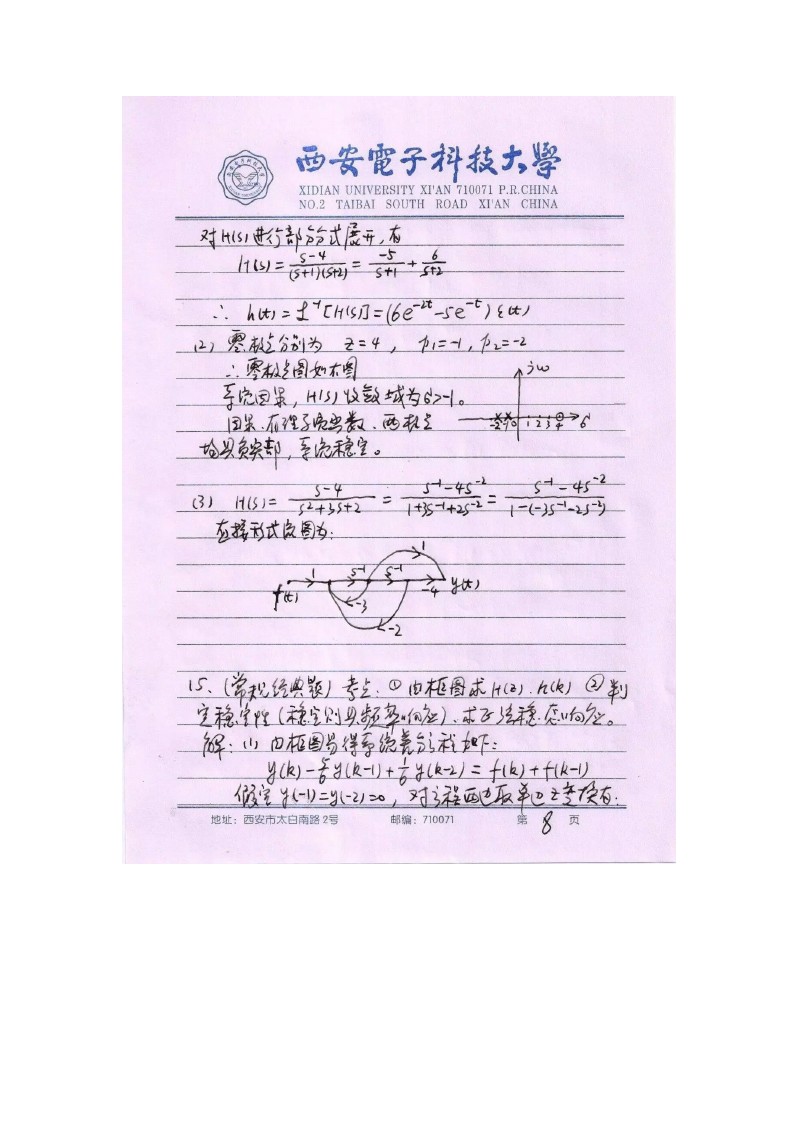 西安電子科技大學
XIDIAN UNIVERSITY XI'AN 710071 P.R.CHINA
NO.2 TAIBAI SOUTH ROAD XI'AN CHINA
对H(s)进行部分分式展开,有
H(s) = (s-4)/((s+1)(s+2)) = -5/(s+1) + 6/(s+2)
∴ h(t) = ℒ⁻¹[H(s)] = (6e^{-2t} - 5e^{-t}) ε(t)
(2) 零极点分别为 z=4 , p₁=-1, p₂=-2
∴零极点图如右图
系统因果, H(s)收敛域为σ>-1。
因果、有理系统函数、两极点
均具负实部, 系统稳定。
jω
-2 -1 0 1 2 3 4 σ
(3) H(s) = (s-4)/(s²+3s+2) = (s⁻¹-4s⁻²)/(1+3s⁻¹+2s⁻²) = (s⁻¹-4s⁻²)/(1-(-3s⁻¹-2s⁻²))
直接形式流图为:
f(t) 1 s⁻¹ s⁻¹ 1 -4 y(t)
-3
-2
15、(常规经典题) 考点: ① 由框图求H(z)、h(k) ② 判
定稳定性(稳定则具频率响应)、求正弦稳态响应。
解: (1) 由框图易得系统差分方程如下:
y(k) - 5/6 y(k-1) + 1/6 y(k-2) = f(k) + f(k-1)
假定 y(-1)=y(-2)=0, 对方程两边取单边z变换有:
地址: 西安市太白南路2号 邮编: 710071 第 8 页